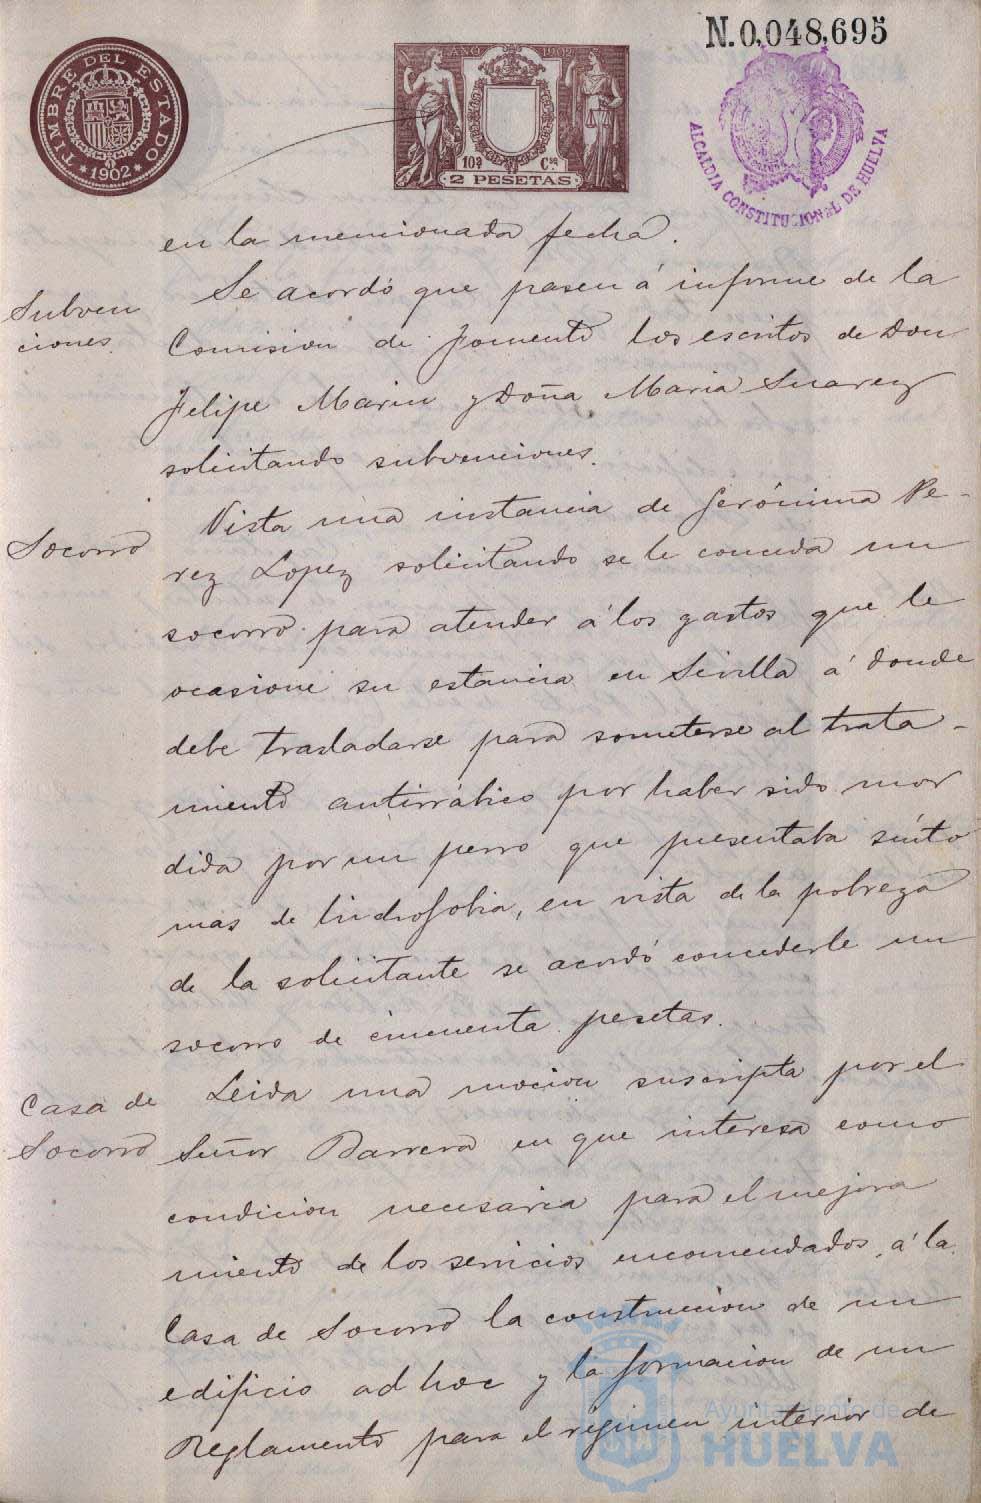 N.0,048,695
TIMBRE DEL ESTADO
1902
AÑO 1902
10ª Cse
2 PESETAS
ALCALDIA CONSTITUCIONAL DE HUELVA
en la mencionada fecha.
Subven
ciones.
Se acordó que pasen á informe de la
Comision de Fomento los escritos de Don
Felipe Marin y Doña Maria Suarez
solicitando subvenciones.
Socorro
Vista una instancia de Gerónima Pe-
rez Lopez solicitando se le conceda un
socorro para atender á los gastos que le
ocasione su estancia en Sevilla á donde
debe trasladarse para someterse al trata-
miento antirrábico por haber sido mor
dida por un perro que presentaba sínto
mas de hidrofobia, en vista de la pobreza
de la solicitante se acordó concederle un
socorro de cincuenta pesetas.
Casa de
Socorro
Leida una mocion suscripta por el
Señor Barrera en que interesa como
condicion necesaria para el mejora
miento de los servicios encomendados á la
Casa de Socorro la construccion de un
edificio ad hoc y la formacion de un
Reglamento para el régimen interior de
Ayuntamiento de
HUELVA